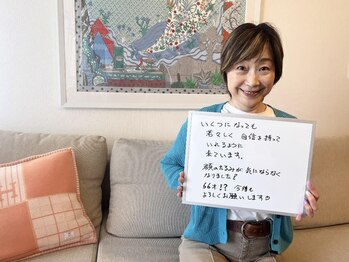 いくつになっても
若々しく 自信を持って
いれるように
来ています。
顔のたるみが気にならなく
なりました!
66才!? 今後も
よろしくお願いします♡